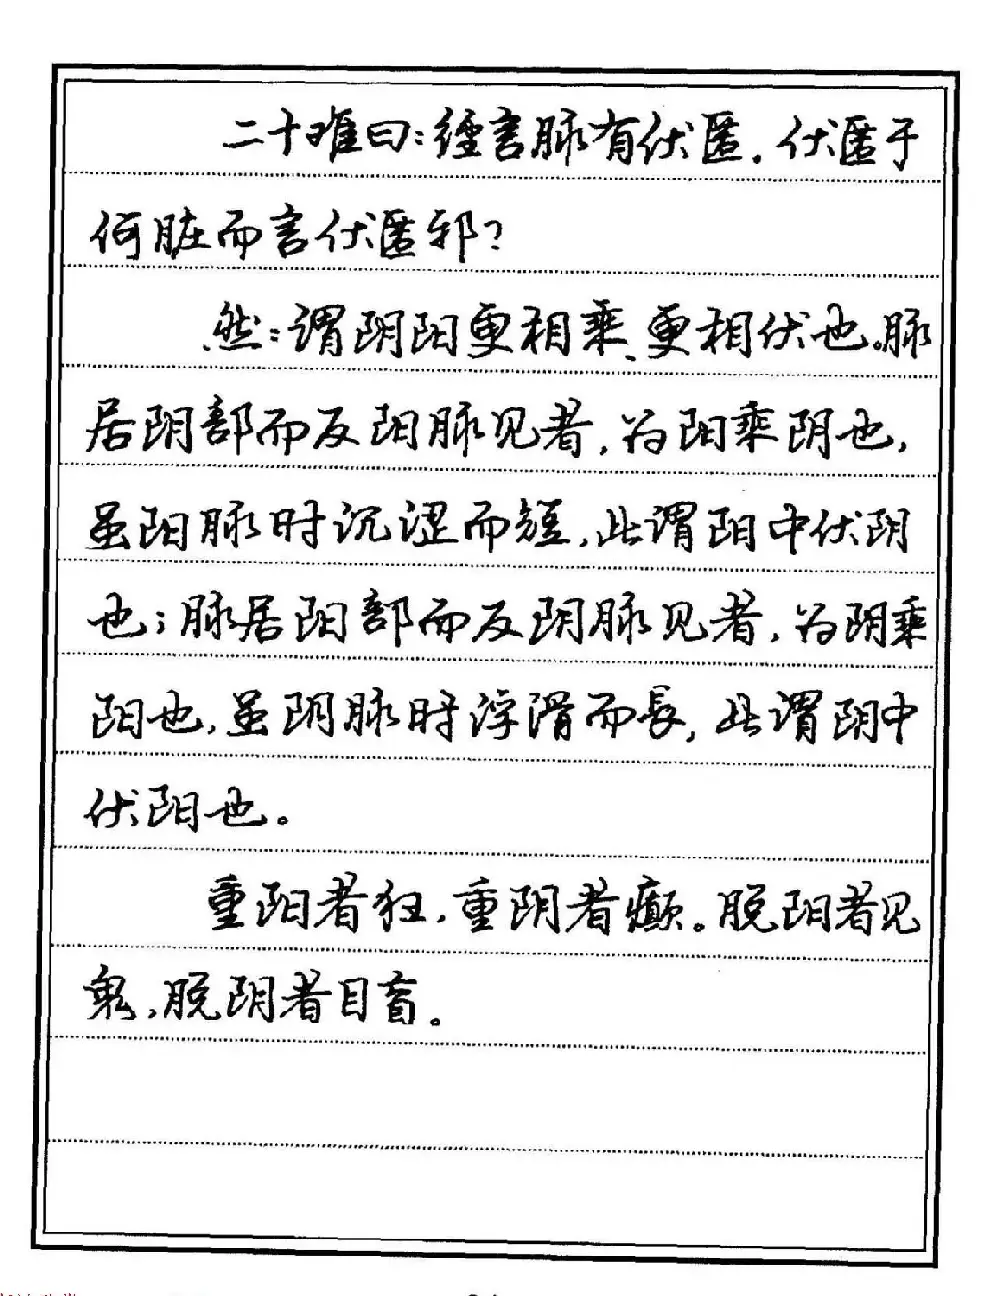 二十难曰：經言脉有伏匿。伏匿于
何脏而言伏匿邪？
然：谓阴阳更相乘、更相伏也。脉
居阴部而反阳脉见者，为阳乘阴也，
虽阳脉时沉涩而短，此谓阳中伏阴
也；脉居阳部而反阴脉见者，为阴乘
阳也，虽阴脉时浮滑而長，此谓阴中
伏阳也。
重阳者狂，重阴者癫。脱阳者见
鬼，脱阴者目盲。